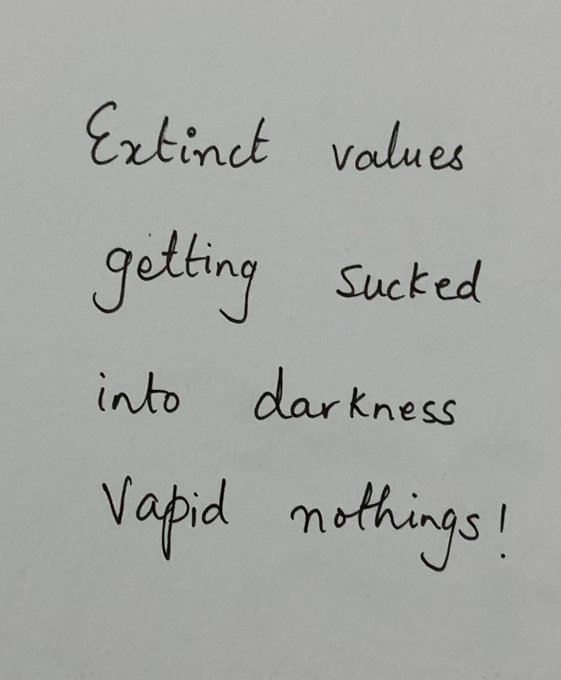 Extinct values
getting sucked
into darkness
Vapid nothings!